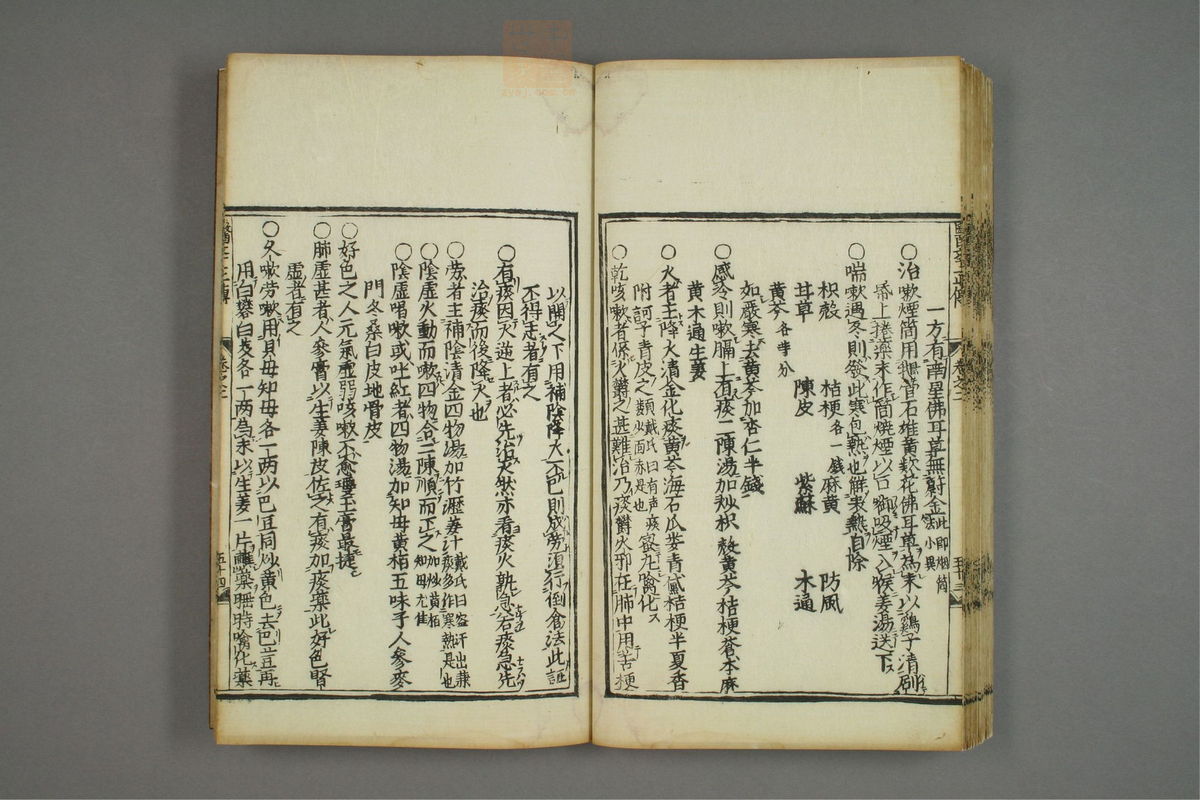 一方有南星佛耳草無鬱金此即烟筒法小異
○治嗽煙筒用鵝管石雄黄款花佛耳草為末以鷄子清刷
紙上捲藥末作筒燒煙以口啣吸煙入喉姜湯送下
○喘嗽遇冬則發此寒包熱也解表熱自除
枳殼 桔梗各一錢 麻黄 防風
甘草 陳皮 紫蘇 木通
黄芩各半分
如嚴寒去黄芩加杏仁半錢
○感冷則嗽膈上有痰二陳湯加炒枳殼黄芩桔梗蒼朮麻
黄木通生姜
○火者主降火清金化痰黄芩海石瓜蔞青黛桔梗半夏香
附訶子青皮之類戴氏曰有声痰少面赤是也蜜丸噙化
○乾咳嗽者係火鬱之甚難治乃痰鬱火邪在肺中用苦梗
以開之下用補陰降火不已則成勞須行倒倉法此證
不得志者有之
○有痰因火逆上者必先治火然亦看痰火孰急若痰急先
治痰而後降火也
○勞者主補陰清金四物湯加竹瀝姜汁戴氏曰盗汗出兼痰多作寒熱是也
○陰虚火動而嗽四物合二陳順而下之加炒黄栢知母尤佳
○陰虚喘嗽或吐紅者四物湯加知母黄栢五味子人參麥
門冬桑白皮地骨皮
○好色之人元氣虚弱咳嗽不愈瓊玉膏最捷
○肺虚甚者人參膏以生姜陳皮佐之有痰加痰藥此好色腎
虚者有之
○久嗽労嗽用貝母知母各一两以巴豆同炒黄色去巴豆再
用白礬白芨各一两為末以生姜一片蘸藥睡時噙化藥
五十四